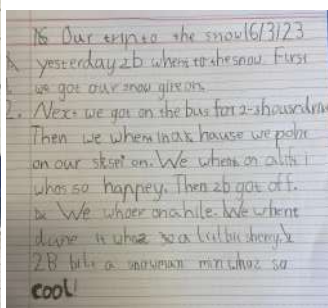 Our trip to the snow 16/3/23
yesterday 2b whent to the snow First
we got our snow gire on.
2. Next we got on the bus for 2-3 hours
Then we whent in a hause we
on our on. We whent on a I
whos so happey. Then 2b got off.
We on a hile. We whent
it whoz so a bit
2B a snowman min whoz so
cool!